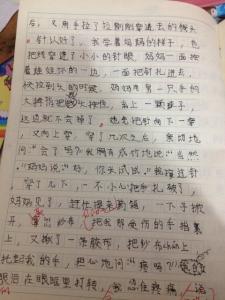 后，又用手拉了拉刚刚穿进去的线头
针认好了，我学着妈妈的样子，也
把线穿进了小小的针眼，妈妈一面按
着娃娃坏的一边，一面把针扎进去，
快拉到头的时候，妈妈用另一只手的
大拇指把线头按住，当上一颗瘤子，
这边就不会掉了。她也把针向下一穿
又向上穿，穿了几次之后，亲切地
问："会了吗？"我胸有成竹地说："当然
"妈妈说："好，你来试试。"我接过针
穿了几下，一不小心把手扎破了，
妈妈见了，赶忙提来药箱，一下子掀
开，拿出纱布，把我那受伤的手指裹
上，又撕了一条胶布，把纱布chán上
托起我的手，担心地问："疼吗？"
眼泪在眼眶里打转，忍住疼痛，